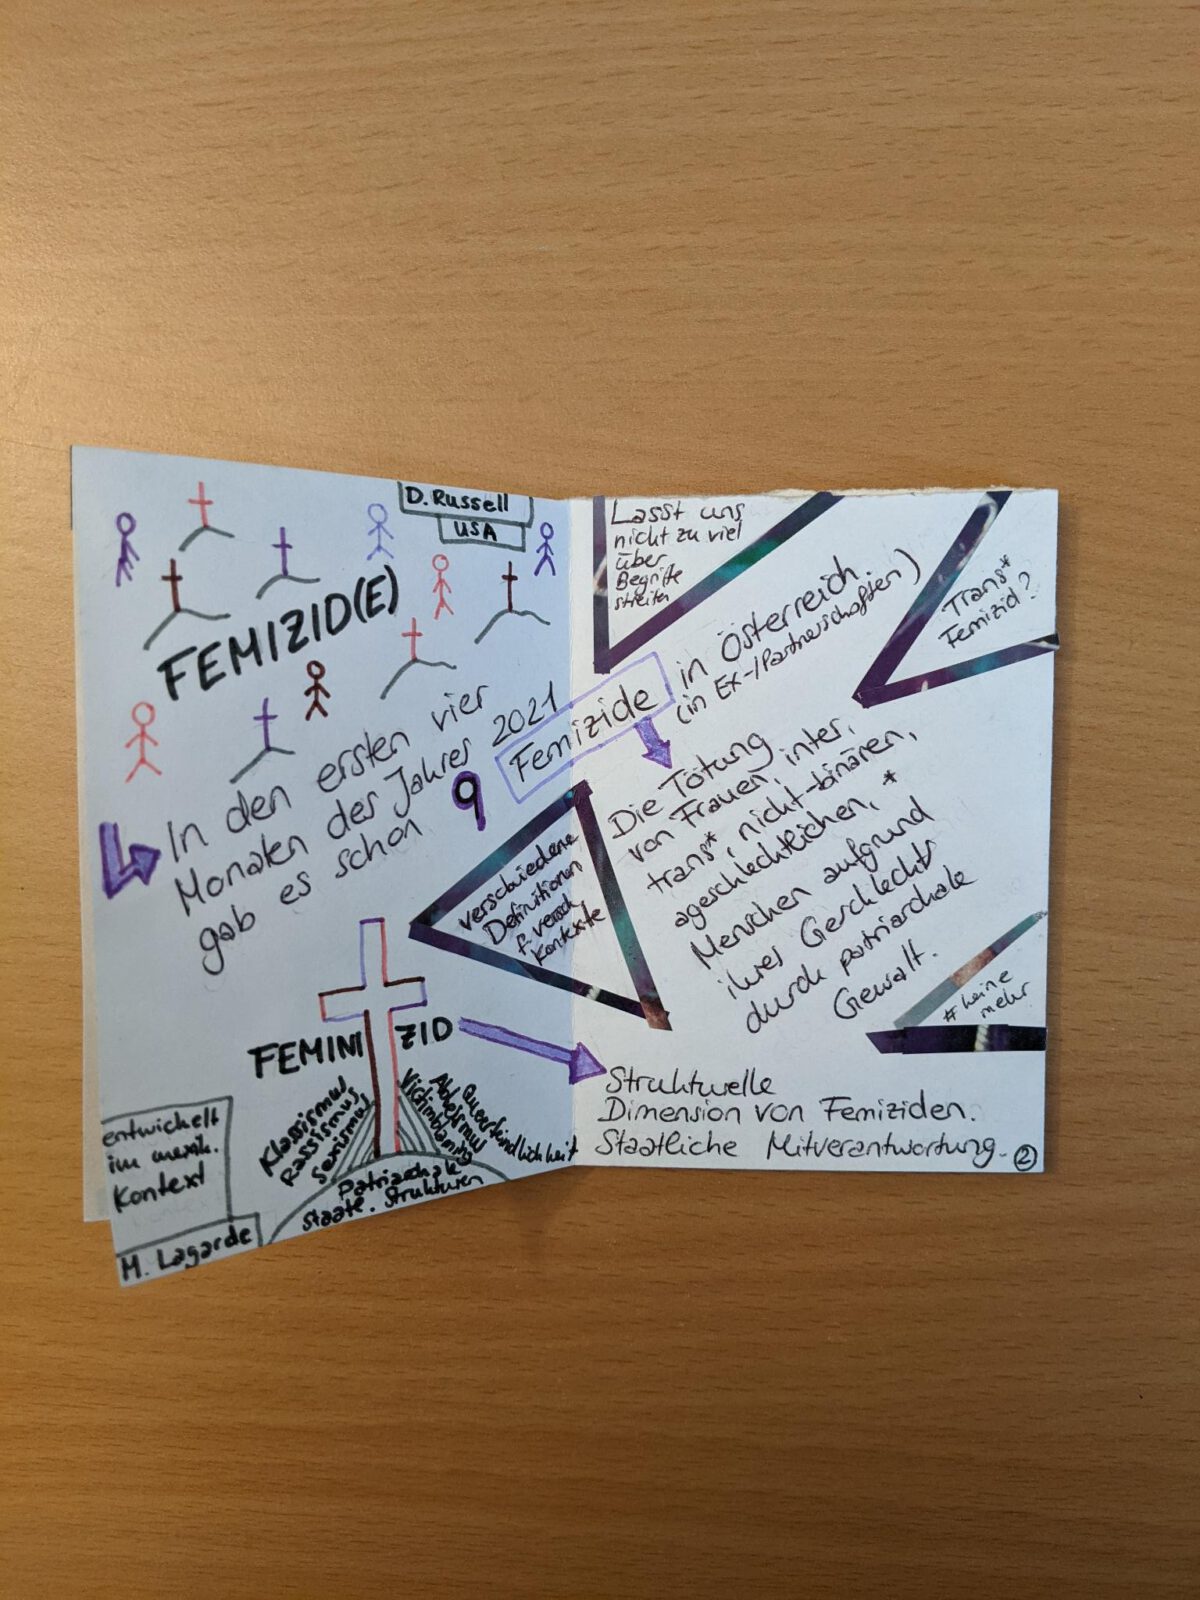 D. Russell
USA
FEMIZID(E)
In den ersten vier
Monaten des Jahres 2021
gab es schon 9 Femizide in Österreich
(in Ex-/Partnerschaften)
Lasst uns
nicht zu viel
über
Begriffe
streiten
Trans*
Femizid?
Die Tötung
von Frauen, inter,
trans*, nicht-binären,
ageschlechtlichen, *
Menschen aufgrund
ihres Geschlechts
durch patriarchale
Gewalt.
verschiedene
Definitionen
f. versch
Kontexte
#keine
mehr
FEMINIZID
Klassismus
Rassismus
Sexismus
Victimblaming
Ableismus
Queerfeindlichkeit
Patriarchale
staatl. Strukturen
entwickelt
im mexik.
Kontext
M. Lagarde
Strukturelle
Dimension von Femiziden.
Staatliche Mitverantwortung.
2